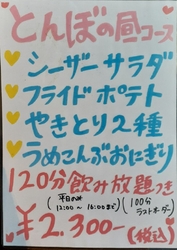 とんぼの昼コース
シーザーサラダ
フライドポテト
やきとり2種
うめこんぶおにぎり
120分飲み放題つき
(平日のみ 12:00〜16:00まで)(100分ラストオーダー)
¥2.300-(税込)